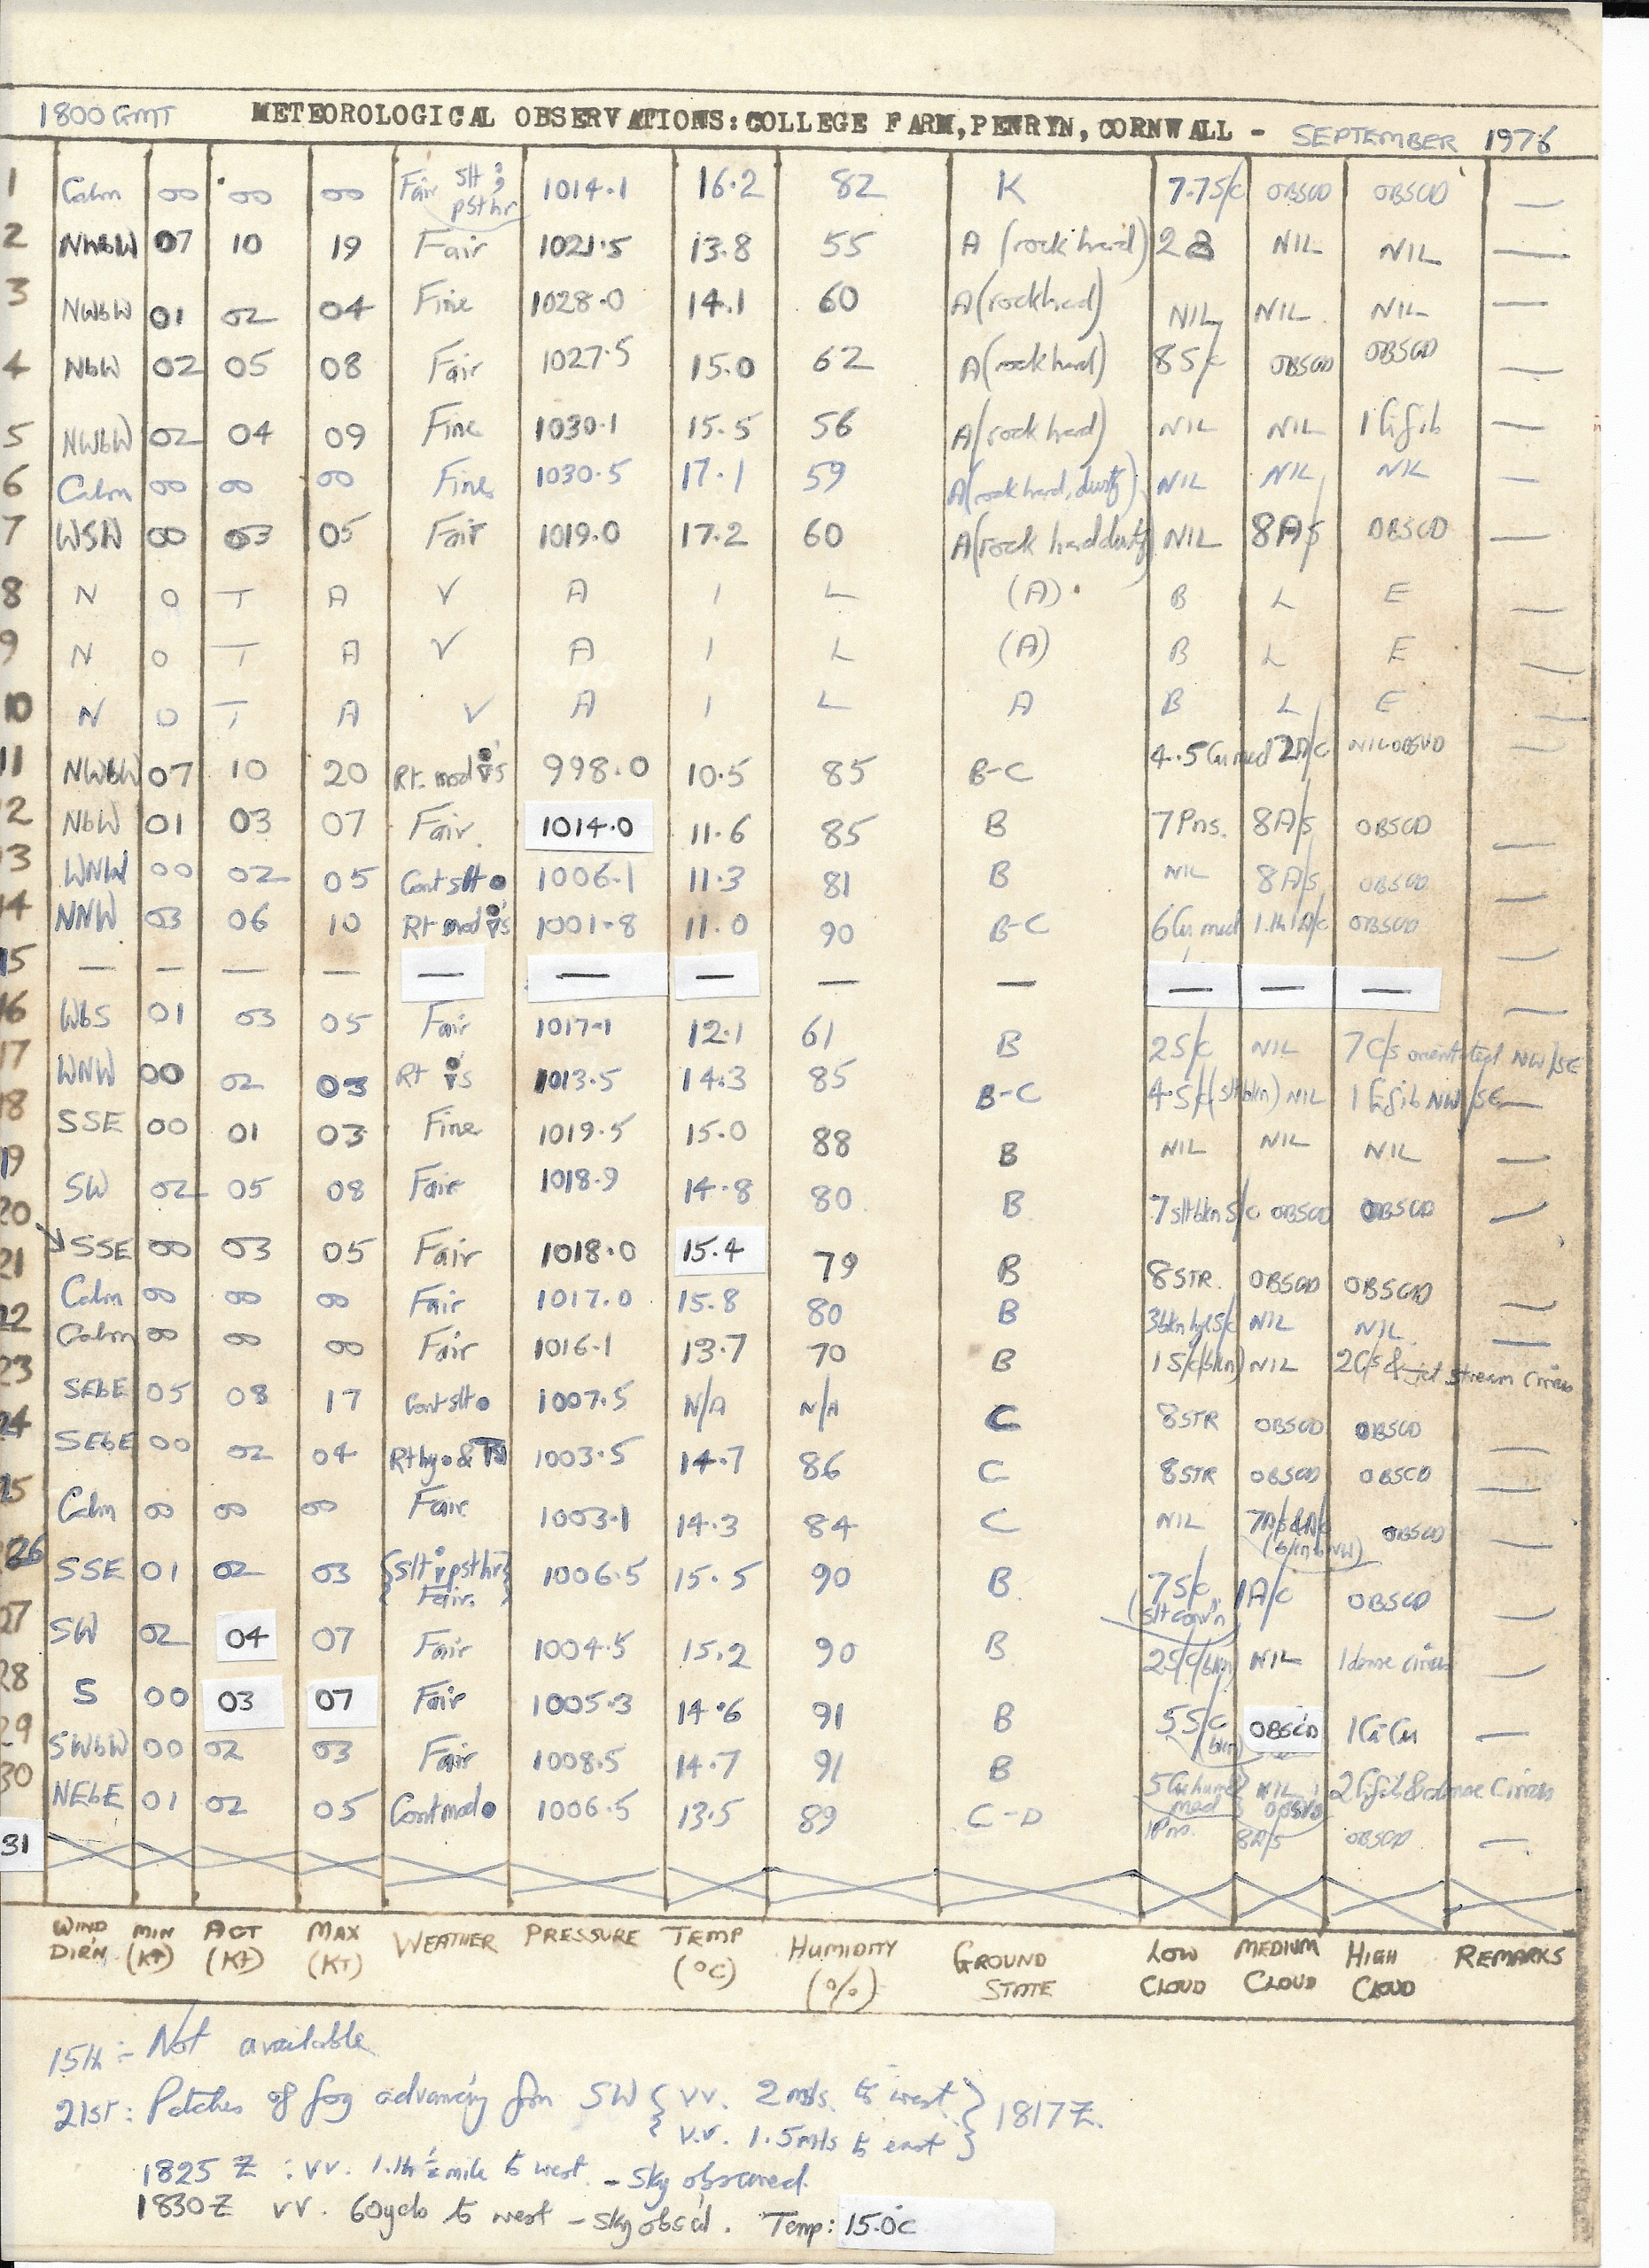 1800 GMT METEOROLOGICAL OBSERVATIONS: COLLEGE FARM, PENRYN, CORNWALL - SEPTEMBER 1976
1 Calm 00 00 00 Fair slt psthr 1014.1 16.2 82 K 7.7 S/C OBSCD OBSCD —
2 NWbW 07 10 19 Fair 1021.5 13.8 55 A (rock hard) 2 NIL NIL —
3 NWbW 01 02 04 Fine 1028.0 14.1 60 A (rock hard) NIL NIL NIL —
4 NbW 02 05 08 Fair 1027.5 15.0 62 A (rock hard) 8 S/C OBSCD OBSCD —
5 NWbW 02 04 09 Fine 1030.1 15.5 56 A (rock hard) NIL NIL 1 Cifib —
6 Calm 00 00 00 Fine 1030.5 17.1 59 A (rock hard, dusty) NIL NIL NIL —
7 WSW 00 03 05 Fair 1019.0 17.2 60 A (rock hard dusty) NIL 8 A/S OBSCD —
8 N O T A V A I L (A) B L E —
9 N O T A V A I L (A) B L E —
10 N O T A V A I L A B L E —
11 NWbW 07 10 20 Rt. mod 's 998.0 10.5 85 B-C 4.5 Cu med 2 A/C NIL OBSVD —
12 NbW 01 03 07 Fair 1014.0 11.6 85 B 7 Pns. 8 A/S OBSCD —
13 WNW 00 02 05 Cont slt ● 1006.1 11.3 81 B NIL 8 A/S OBSCD —
14 NNW 03 06 10 Rt mod 's 1001.8 11.0 90 B-C 6 Cu med 1.th 1 A/C OBSCD —
15 — — — — — — — — — — — — —
16 WbS 01 03 05 Fair 1017.1 12.1 61 B 2 S/C NIL 7 C/S orientated NW/SE
17 WNW 00 02 03 Rt 's 1013.5 14.3 85 B-C 4.S/C (slt bkn) NIL 1 Cifib NW/SE —
18 SSE 00 01 03 Fine 1019.5 15.0 88 B NIL NIL NIL —
19 SW 02 05 08 Fair 1018.9 14.8 80 B 7 slt bkn S/C OBSCD OBSCD —
20 SSE 00 03 05 Fair 1018.0 15.4 79 B 8 STR. OBSCD OBSCD —
21 Calm 00 00 00 Fair 1017.0 15.8 80 B 3 bkn S/C NIL NIL —
22 Calm 00 00 00 Fair 1016.1 13.7 70 B 1 S/C (bkn) NIL 2 C/S & jet stream cirrus
23 SEbE 05 08 17 Cont slt ● 1007.5 N/A N/A C 8 STR OBSCD OBSCD —
24 SEbE 00 02 04 Rt hy ● & 1003.5 14.7 86 C 8 STR OBSCD OBSCD —
25 Calm 00 00 00 Fair 1003.1 14.3 84 C NIL 7 A/S & A/C OBSCD —
26 SSE 01 02 03 {Slt psthr} Fair. 1006.5 15.5 90 B 7 S/C (slt conv'n) 1 A/C OBSCD —
27 SW 02 04 07 Fair 1004.5 15.2 90 B 2 S/C (bkn) NIL 1 dense cirrus —
28 S 00 03 07 Fair 1005.3 14.6 91 B 5 S/C (bkn) OBSC'D 1 Ci Cu —
29 SWbW 00 02 03 Fair 1008.5 14.7 91 B 5 Cu hum & med NIL OBSVD 2 Cifib & dense cirrus
30 NEbE 01 02 05 Cont mod ● 1006.5 13.5 89 C-D 1 Pns. 8 A/S OBSCD —
31
WIND DIR'N MIN (KT) ACT (KT) MAX (KT) WEATHER PRESSURE TEMP (°C) HUMIDITY (%) GROUND STATE LOW CLOUD MEDIUM CLOUD HIGH CLOUD REMARKS
15th :- Not available
21st : Patches of fog advancing fm SW { vv. 2 mls. to west
v.v. 1.5 mls to east } 1817 Z.
1825 Z : vv. 1.th ½ mile to west - sky obscured.
1830 Z vv. 60 yds to west - sky obsc'd. Temp: 15.0c